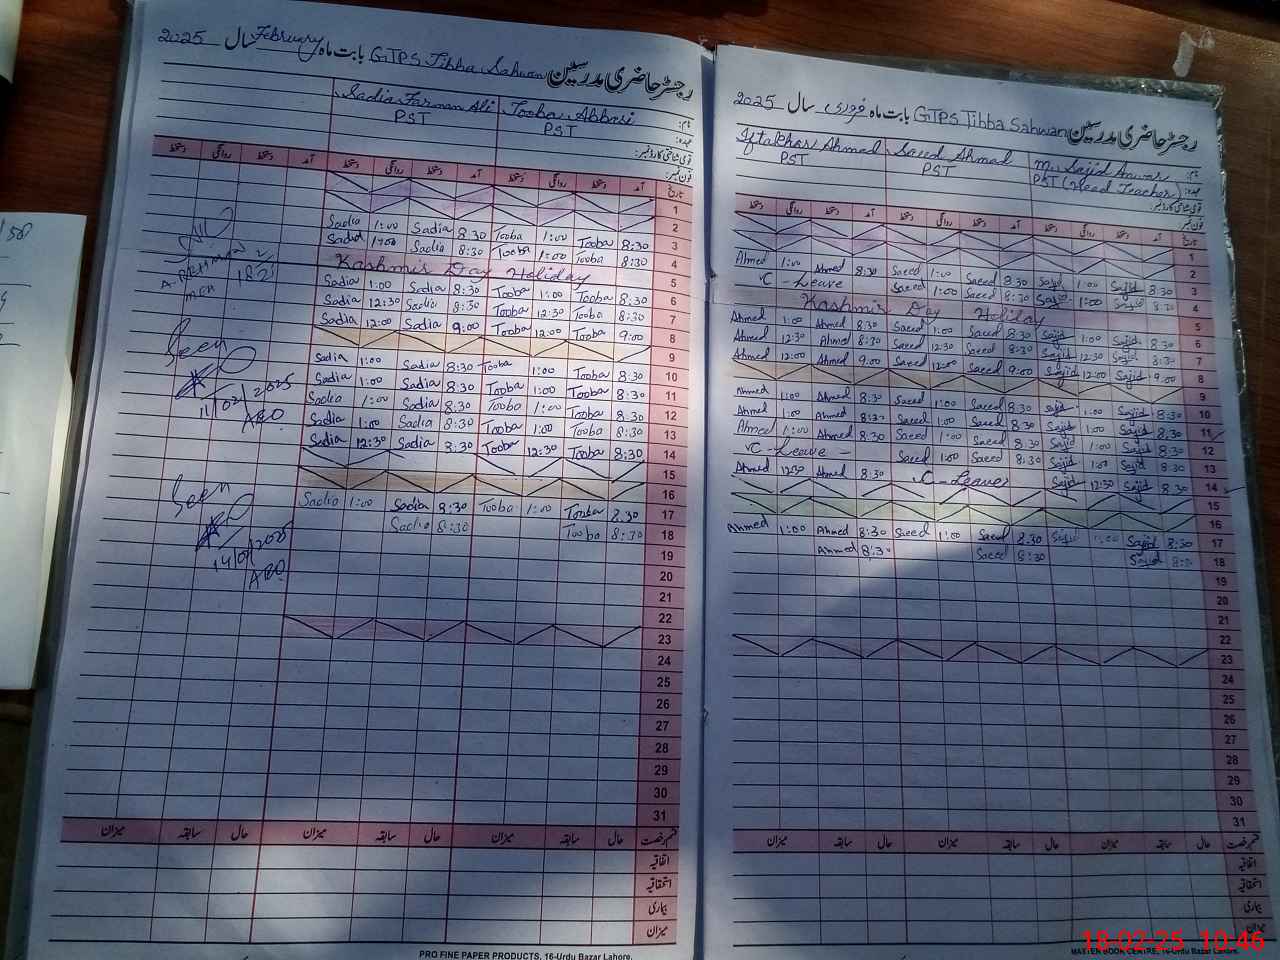 رجسٹر حاضری مدرسین GTPS Tibba Sahwan بابت ماہ February سال 2025
نام: Tooba Abbasi Sadia Farman Ali
عہدہ: PST PST
قومی شناختی کارڈ نمبر:
فون نمبر:
تاریخ آمد دستخط روانگی دستخط آمد دستخط روانگی دستخط آمد دستخط روانگی دستخط
1
2
Sadia 1:00 Sadia 8:30 Tooba 1:00 Tooba 8:30 3
Sadia 1:00 Sadia 8:30 Tooba 1:00 Tooba 8:30 4
Kashmir Day Holiday 5
Sadia 1:00 Sadia 8:30 Tooba 1:00 Tooba 8:30 6
Sadia 12:30 Sadia 8:30 Tooba 12:30 Tooba 8:30 7
Sadia 12:00 Sadia 9:00 Tooba 12:00 Tooba 9:00 8
9
Sadia 1:00 Sadia 8:30 Tooba 1:00 Tooba 8:30 10
Sadia 1:00 Sadia 8:30 Tooba 1:00 Tooba 8:30 11
Sadia 1:00 Sadia 8:30 Tooba 1:00 Tooba 8:30 12
Sadia 1:00 Sadia 8:30 Tooba 1:00 Tooba 8:30 13
Sadia 12:30 Sadia 8:30 Tooba 12:30 Tooba 8:30 14
15
16
Sadia 1:00 Sadia 8:30 Tooba 1:00 Tooba 8:30 17
Sadia 8:30 Tooba 8:30 18
19
20
21
22
23
24
25
26
27
28
29
30
31
Seen
11/02/2025
AEO
Seen
14/02/2025
AEO
قسم رخصت حال سابقہ میزان حال سابقہ میزان حال سابقہ میزان
اتفاقیہ
استحقاقیہ
بیماری
میزان
PRO FINE PAPER PRODUCTS, 16-Urdu Bazar Lahore.
رجسٹر حاضری مدرسین GTPS Tibba Sahwan بابت ماہ فروری سال 2025
نام: M. Sajid Anwar Saeed Ahmad Iftakhar Ahmed
عہدہ: PST (Head Teacher) PST PST
قومی شناختی کارڈ نمبر:
فون نمبر:
تاریخ آمد دستخط روانگی دستخط آمد دستخط روانگی دستخط آمد دستخط روانگی دستخط
1
2
Ahmed 1:00 Ahmed 8:30 Saeed 1:00 Saeed 8:30 Sajid 1:00 Sajid 8:30 3
C-Leave Saeed 1:00 Saeed 8:30 Sajid 1:00 Sajid 8:30 4
Kashmir Day Holiday 5
Ahmed 1:00 Ahmed 8:30 Saeed 1:00 Saeed 8:30 Sajid 1:00 Sajid 8:30 6
Ahmed 12:30 Ahmed 8:30 Saeed 12:30 Saeed 8:30 Sajid 12:30 Sajid 8:30 7
Ahmed 12:00 Ahmed 9:00 Saeed 12:00 Saeed 9:00 Sajid 12:00 Sajid 9:00 8
9
Ahmed 1:00 Ahmed 8:30 Saeed 1:00 Saeed 8:30 Sajid 1:00 Sajid 8:30 10
Ahmed 1:00 Ahmed 8:30 Saeed 1:00 Saeed 8:30 Sajid 1:00 Sajid 8:30 11
Ahmed 1:00 Ahmed 8:30 Saeed 1:00 Saeed 8:30 Sajid 1:00 Sajid 8:30 12
C-Leave - Saeed 1:00 Saeed 8:30 Sajid 1:00 Sajid 8:30 13
Ahmed 12:30 Ahmed 8:30 C-Leave Sajid 12:30 Sajid 8:30 14
15
16
Ahmed 1:00 Ahmed 8:30 Saeed 1:00 Saeed 8:30 Sajid 1:00 Sajid 8:30 17
Ahmed 8:30 Saeed 8:30 Sajid 8:30 18
19
20
21
22
23
24
25
26
27
28
29
30
31
قسم رخصت حال سابقہ میزان حال سابقہ میزان حال سابقہ میزان
اتفاقیہ
استحقاقیہ
بیماری
میزان
MASTER BOOK CENTRE, 16-Urdu Bazar Lahore.
18-02-25 10:46